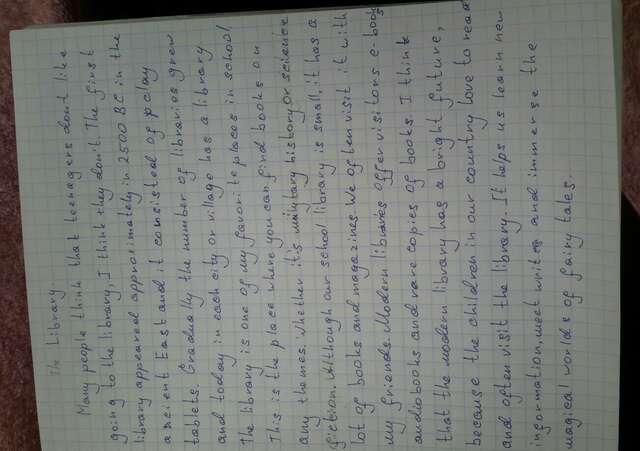 The Library
Many people think that teenagers don't like
going to the library, I think they don't. The first
library appeared approximately in 2500 BC in the
ancient East and it consisted of pclay
tablets. Gradually the number of libraries grew
and today in each city or village has a library
The library is one of my favorite places in school.
This is the place where you can find books on
any themes. Whether it's military history or science
fiction. Although our school library is small, it has a
lot of books and magazines. We often visit it with
my friends. Modern libraries offer visitors e-books
audiobooks and rare copies of books. I think
that the modern library has a bright future,
because the children in our country love to read
and often visit the library. It helps us learn new
information, meet writers and immerse the
magical worlds of fairy tales.